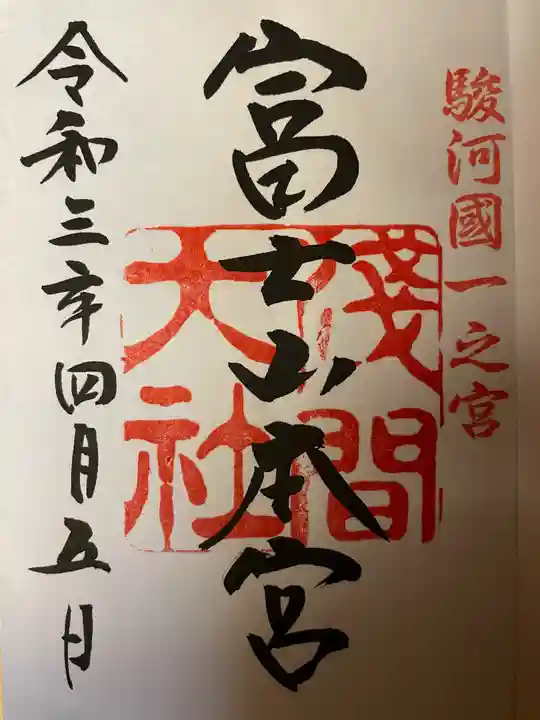 駿河國一之宮
富士山本宮
淺間
大社
令和三年四月五日